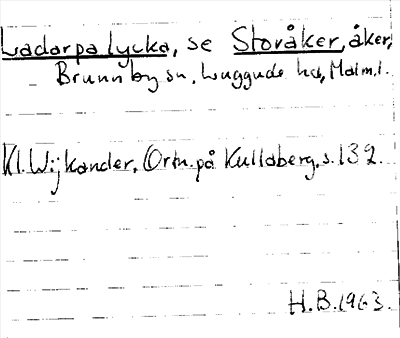 Ladarpa lycka, se Storåker, åker,
Brunnby sn, Luggude hd, Malm.l.
Kl. Wijkander, Ortn. på Kullaberg, s. 132.
H.B. 1963.